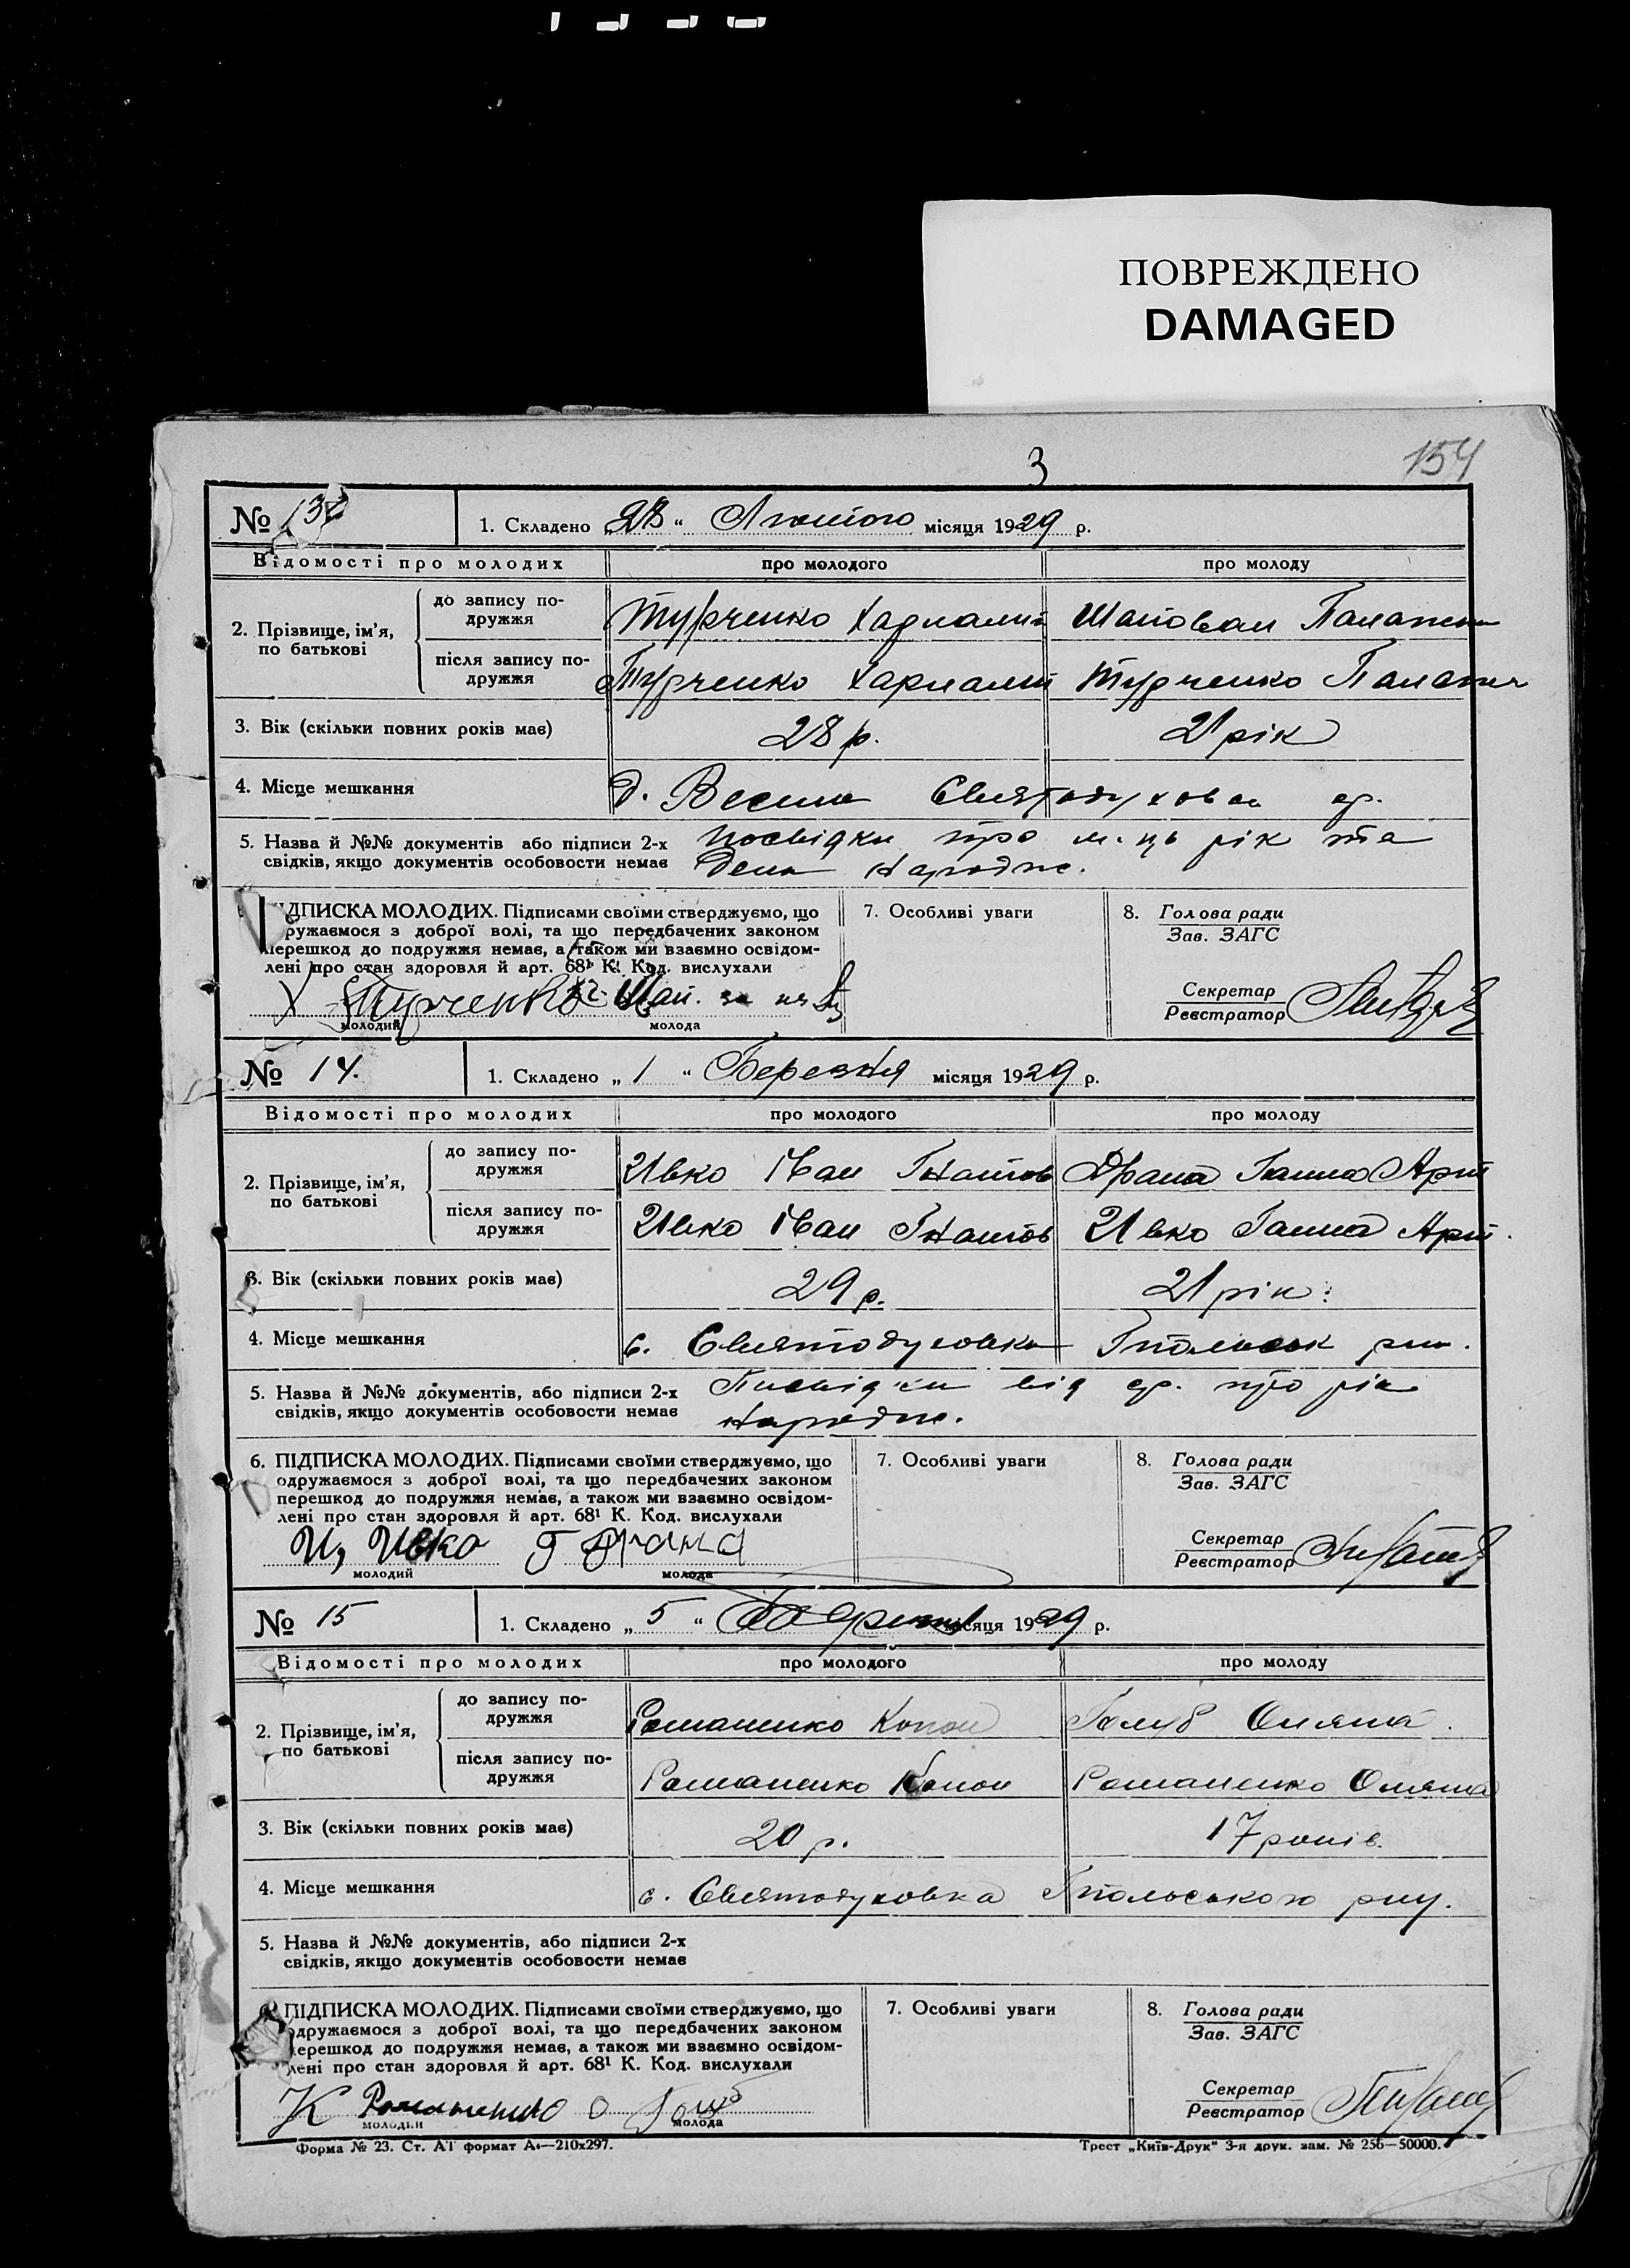 ПОВРЕЖДЕНО
DAMAGED
3
154
№ 13
1. Складено „28“ Лютого місяця 1929 р.
Відомості про молодих
про молодого
про молоду
2. Прізвище, ім'я, по батькові
до запису подружжя
Турченко Харлампій
Шаповал Палажка
після запису подружжя
Турченко Харлампій
Турченко Палажка
3. Вік (скільки повних років має)
28 р.
21 рік
4. Місце мешкання
д. Весела Святодуховка
5. Назва й №№ документів або підписи 2-х
свідків, якщо документів особовости немає
посвідки про м-ць рік та
день народж.
ПІДПИСКА МОЛОДИХ. Підписами своїми стверджуємо, що
одружаємося з доброї волі, та що передбачених законом
перешкод до подружжя немає, а також ми взаємно освідом-
лені про стан здоров'я й арт. 68¹ К. Код. вислухали
Х Турченко Шап. за
молодий
молода
7. Особливі уваги
8. Голова ради
Зав. ЗАГС
Секретар
Реєстратор
№ 14.
1. Складено „1“ Березня місяця 1929 р.
Відомості про молодих
про молодого
про молоду
2. Прізвище, ім'я, по батькові
до запису подружжя
Ивко Іван Гнатов
Драна Ганна Арт
після запису подружжя
Ивко Іван Гнатов
Ивко Ганна Арт.
3. Вік (скільки повних років має)
29 р.
21 рік
4. Місце мешкання
с. Святодуховка рну.
5. Назва й №№ документів, або підписи 2-х
свідків, якщо документів особовости немає
Посвідки від ср. про рік
народж.
6. ПІДПИСКА МОЛОДИХ. Підписами своїми стверджуємо, що
одружаємося з доброї волі, та що передбачених законом
перешкод до подружжя немає, а також ми взаємно освідом-
лені про стан здоровля й арт. 68¹ К. Код. вислухали
И, Ивко Г Драна
молодий
молода
7. Особливі уваги
8. Голова ради
Зав. ЗАГС
Секретар
Реєстратор
№ 15
1. Складено „5“ місяця 1929 р.
Відомості про молодих
про молодого
про молоду
2. Прізвище, ім'я, по батькові
до запису подружжя
Романенко Конон
Голуб Оляна
після запису подружжя
Романенко Конон
Романенко Оляна
3. Вік (скільки повних років має)
20 р.
17 років
4. Місце мешкання
с. Святодуховка рну.
5. Назва й №№ документів, або підписи 2-х
свідків, якщо документів особовости немає
ПІДПИСКА МОЛОДИХ. Підписами своїми стверджуємо, що
одружаємося з доброї волі, та що передбачених законом
перешкод до подружжя немає, а також ми взаємно освідом-
лені про стан здоровля й арт. 68¹ К. Код. вислухали
К Романенко О
молодий
молода
7. Особливі уваги
8. Голова ради
Зав. ЗАГС
Секретар
Реєстратор
Форма № 23. Ст. АТ формат А4—210х297.
Трест „Київ-Друк“ 3-я друк. зам. № 256—50000.